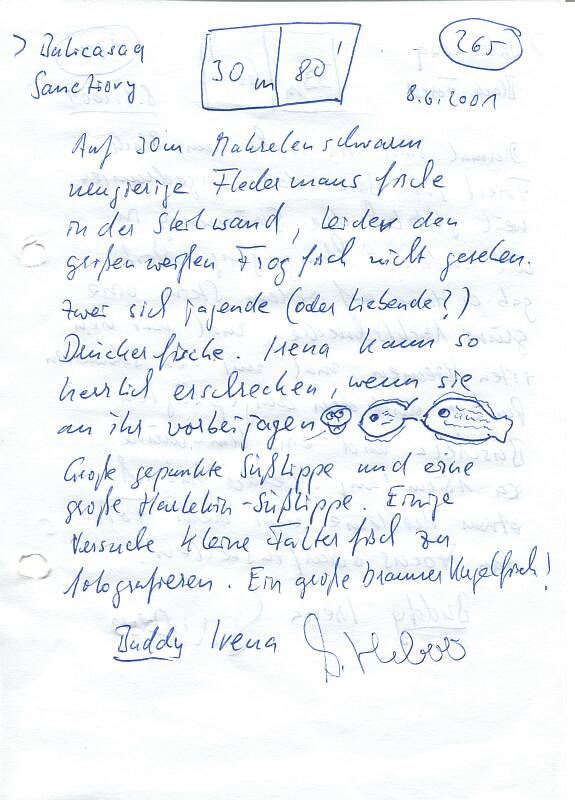 Balicasag
Sanctiory
30m 80'
265
8.6.2001
Auf 30m Makrelenschwarm
neugierige Fledermausfische
in der Steilwand, leider den
großen weißen Frogfisch nicht gesehen.
Zwei sich jagende (oder liebende?)
Drückerfische. Irena kann so
herrlich erschrecken, wenn sie
an ihr vorbeijagen
Große gepunkte Süßlippe und eine
große Harlekin-Süßlippe. Einige
Versuche kleine Falterfisch zu
fotografieren. Ein große brauner Kugelfisch!
Buddy Irena